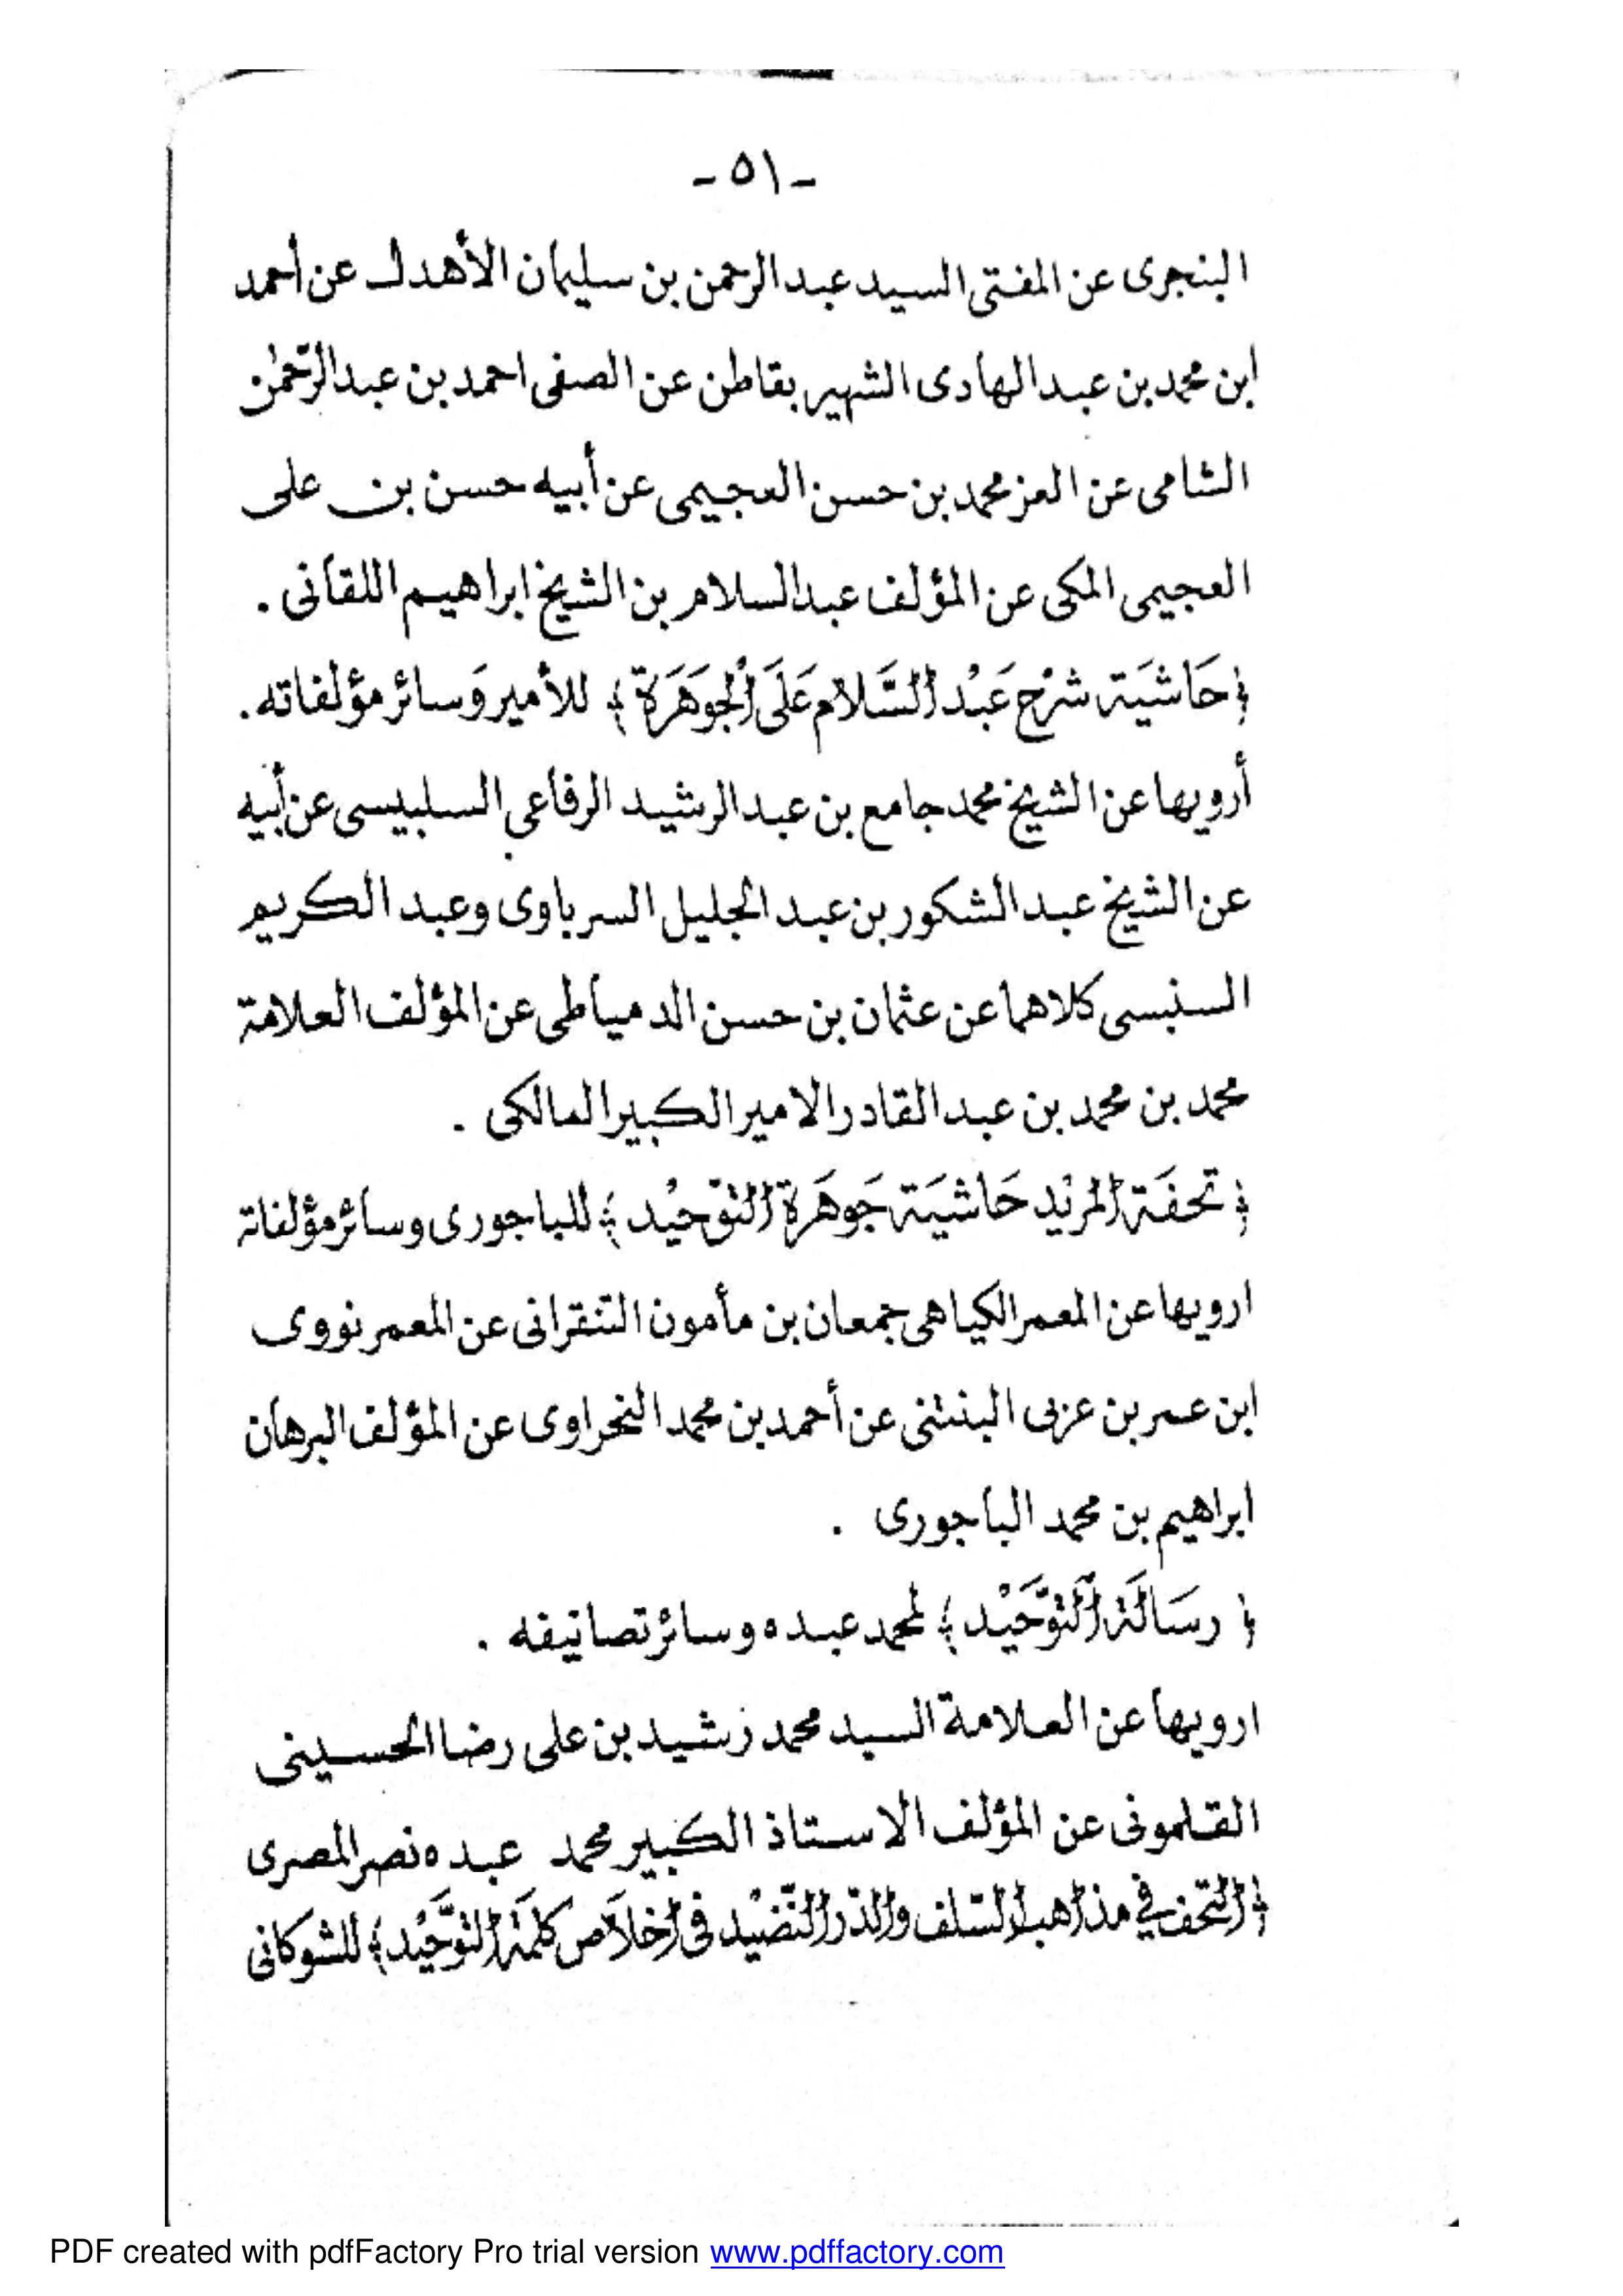 - ٥١ -
البنجرى عن المفتى السيد عبد الرحمن بن سليمان الأهدل عن أحمد
ابن محمد بن عبد الهادى الشهير بقاطن عن الصفى احمد بن عبد الرّحمٰن
الشامى عن العز محمد بن حسن العجيمى عن أبيه حسن بن على
العجيمى المكى عن المؤلف عبد السلام بن الشيخ ابراهيم اللقانى .
﴿ حَاشيَة شرْح عَبْد السَّلام عَلَى الجَوهَرَة ﴾ للأمير وَسائر مؤلفاته .
أرويها عن الشيخ محمد جامع بن عبد الرشيد الرفاعي السلبيسى عن أبيه
عن الشيخ عبد الشكور بن عبد الجليل السرباوى وعبد الكريم
السنبسى كلاهما عن عثمان بن حسن الدمياطى عن المؤلف العلامة
محمد بن محمد بن عبد القادر الامير الكبير المالكى .
﴿ تحفَة المرْيد حَاشيَة جَوهَرة التوْحيْد ﴾ للباجورى وسائر مؤلفاته
ارويها عن المعمر الكياهى جمعان بن مأمون التنقرانى عن المعمر نووى
ابن عمر بن عربى البنتنى عن أحمد بن محمد النحراوى عن المؤلف البرهان
ابراهيم بن محمد الباجورى .
﴿ رسَالَة التوَّحَيْد ﴾ لمحمد عبده وسائر تصانيفه .
ارويها عن العلامة السيد محمد رشيد بن على رضا الحسينى
القلمونى عن المؤلف الاستاذ الكبير محمد عبده نصر المصرى
﴿ التحف في مذاهب السّلف والدّر النّضيْد فى إخلاَص كلمَة التوَّحَيْد ﴾ للشوكانى
PDF created with pdfFactory Pro trial version www.pdffactory.com